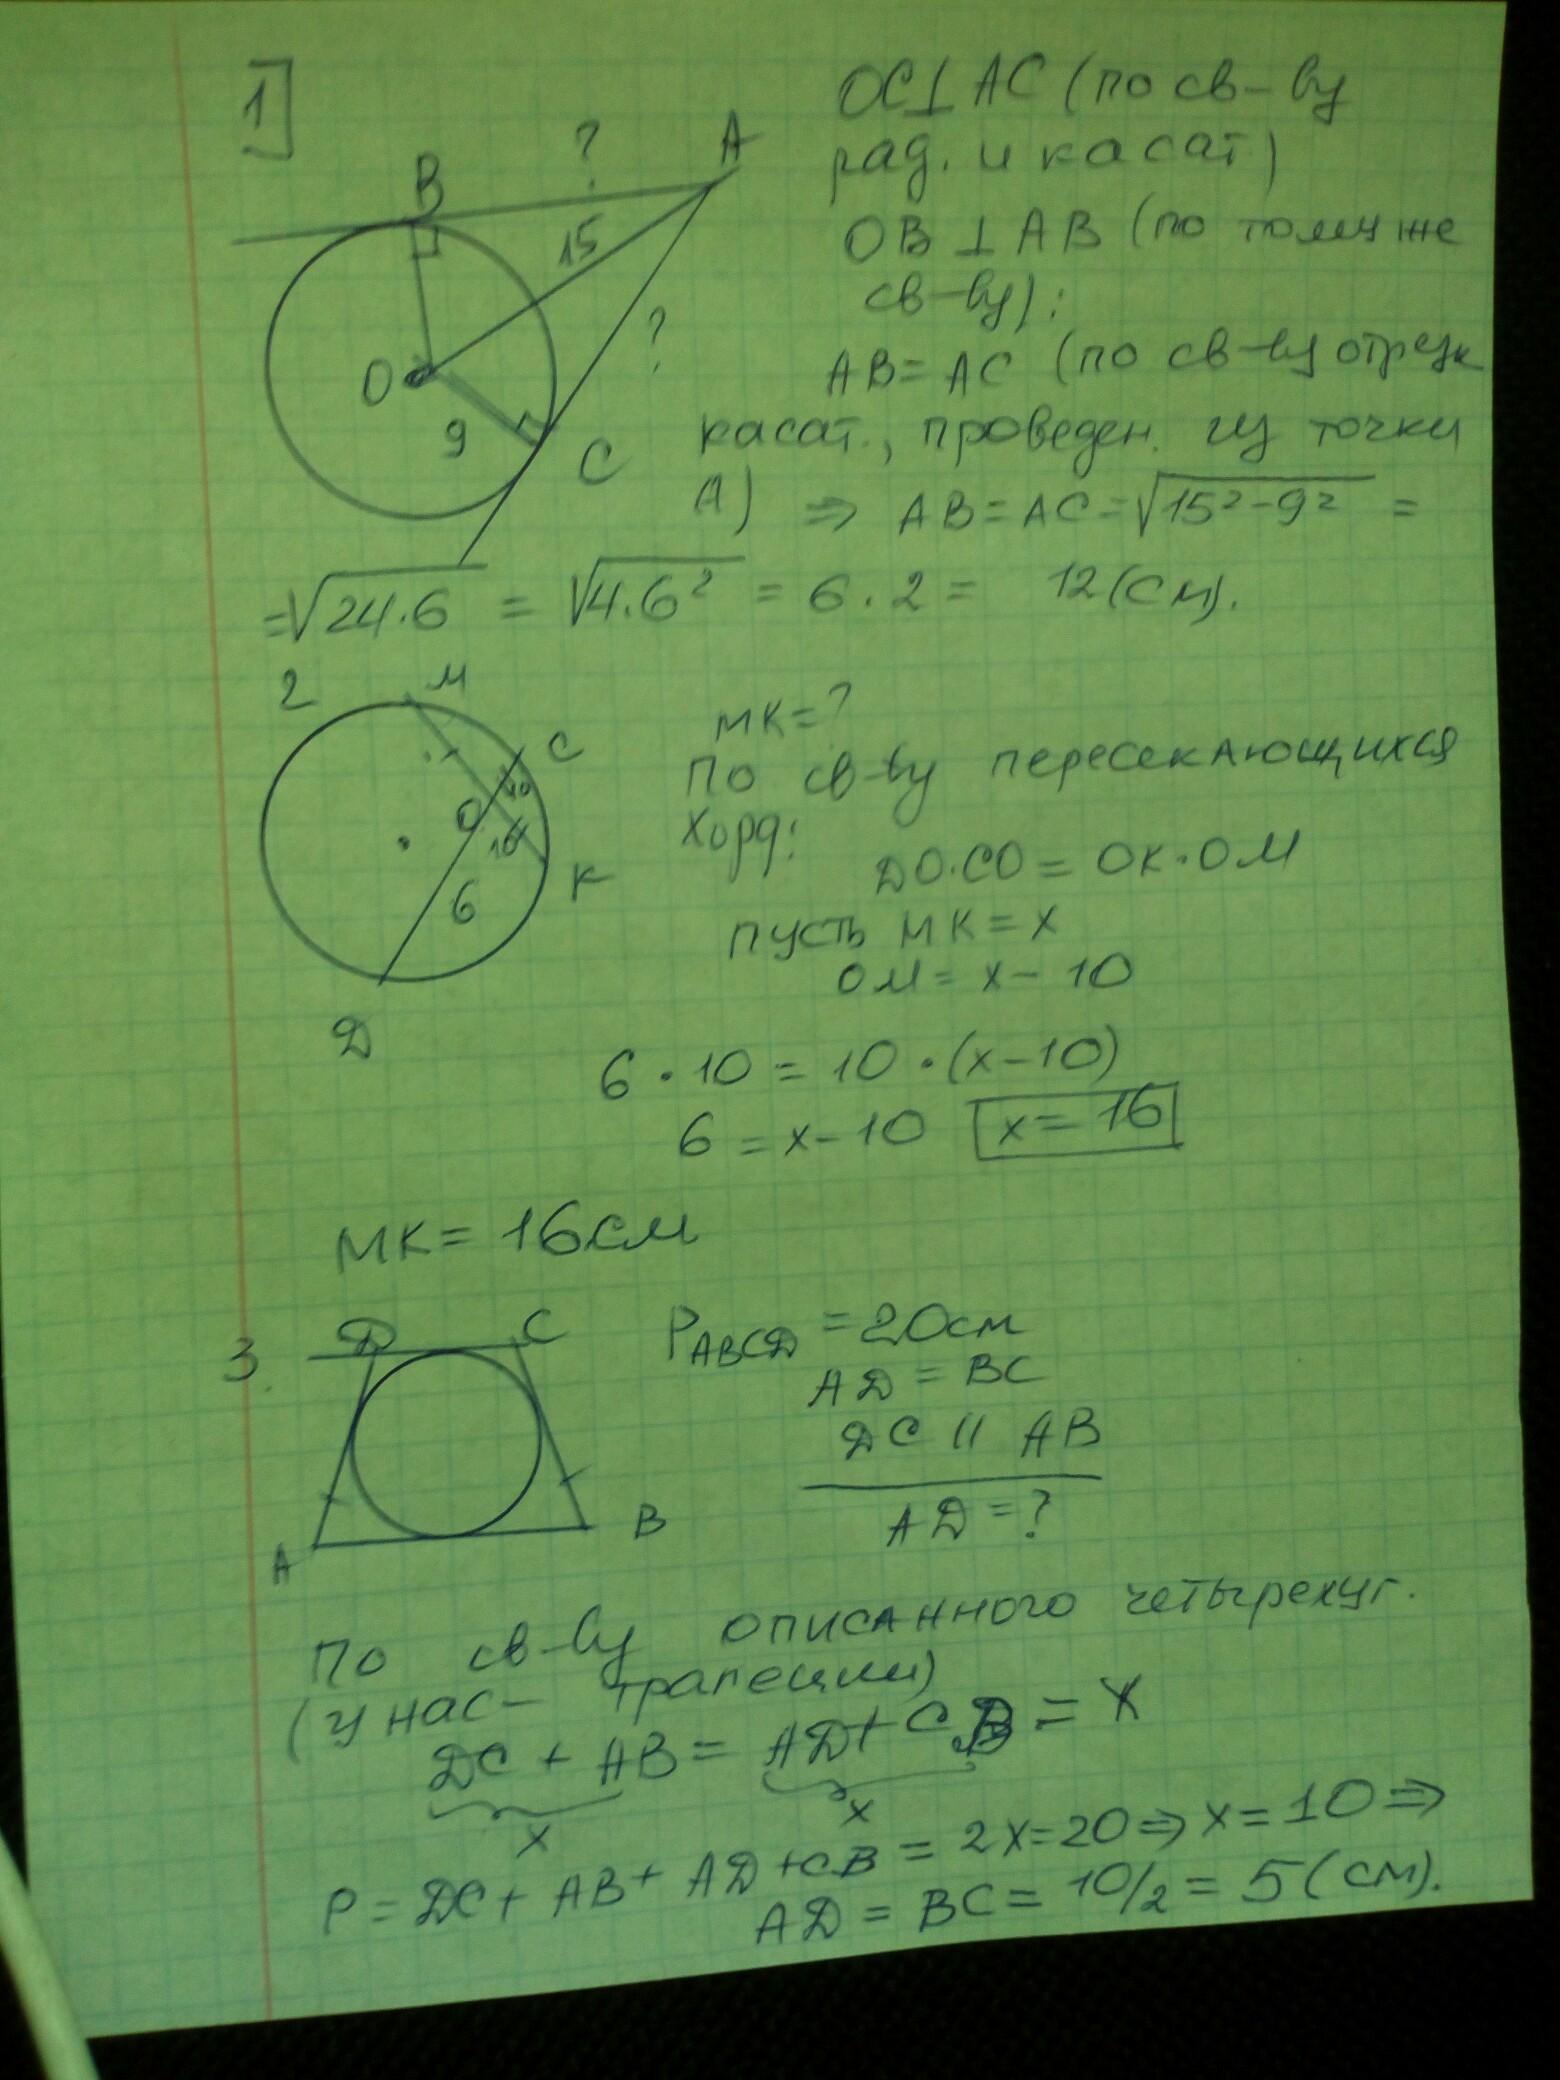 1]
B ? A
15
?
O
9
C
OC⊥AC (по св-ву
рад. и касат)
OB⊥AB (по тому же
св-ву);
AB=AC (по св-ву отрезк
касат., проведен. из точки
A) ⇒ AB=AC=√15²-9² =
=√24·6 = √4·6² = 6·2= 12(см).
2
M
C
10
O
10
6
K
D
MK=?
По св-ву пересекающихся
хорд:
DO·CO=OK·OM
пусть MK=x
OM=x-10
6·10=10·(x-10)
6=x-10 x=16
MK=16см
3.
D C
A B
P ABCD =20см
AD=BC
DC || AB
AD=?
По св-ву описанного четырехуг.
(у нас- трапеции)
DC+AB=AD+CB=x
x x
P=DC+AB+AD+CB=2x=20⇒x=10⇒
AD=BC=10/2=5(см).